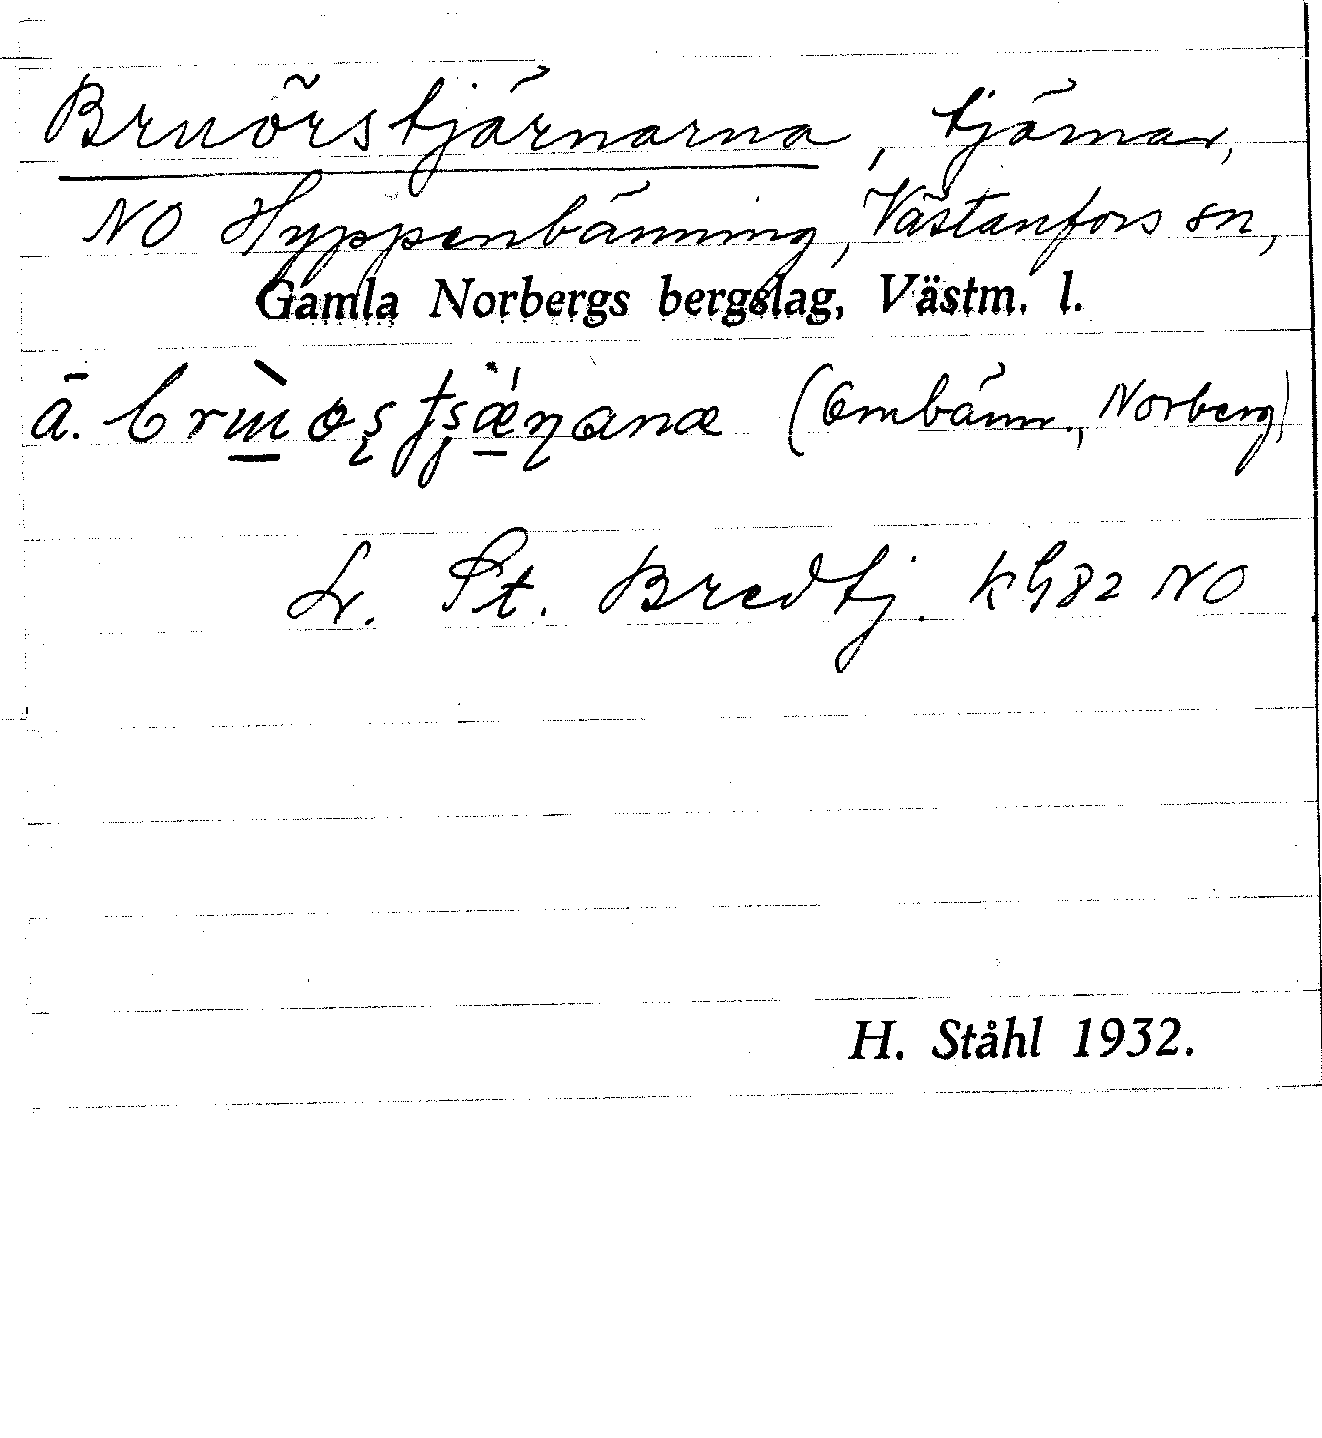 Bruörstjärnarna, tjärnar,
NO Hyppenbänning, Västanfors sn,
Gamla Norbergs bergslag, Västm. l.
ā. (Ombänn., Norberg)
Lr. St. Bredtj. KG82 NO
H. Ståhl 1932.